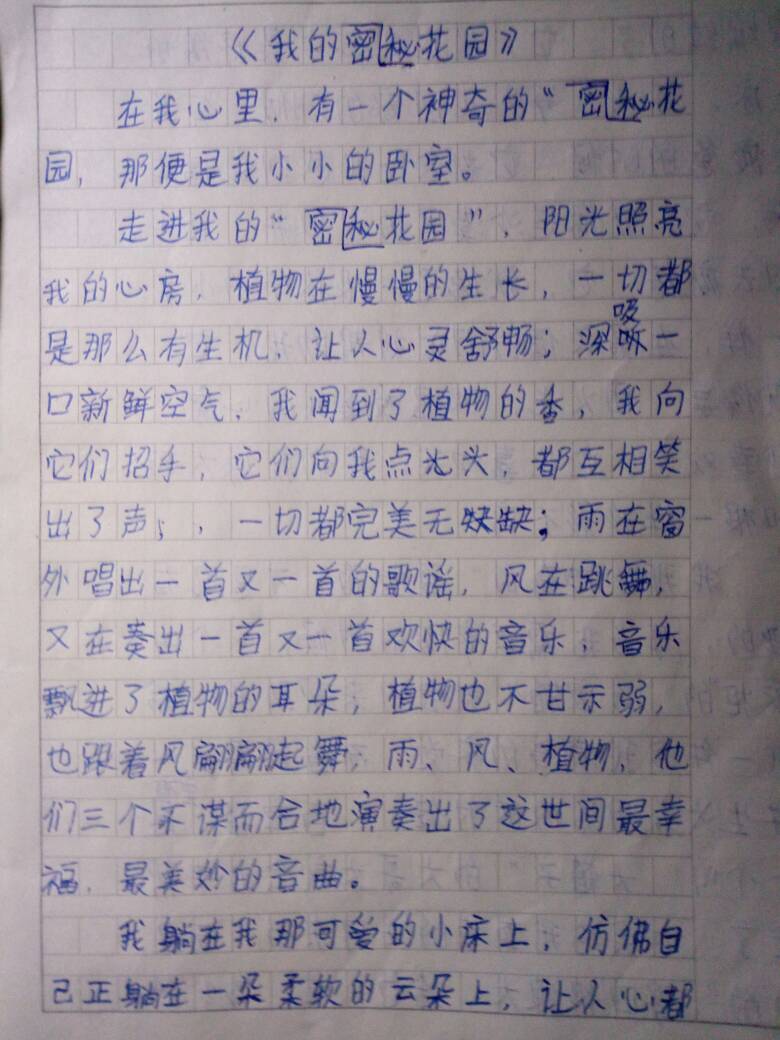 《我的密秘花园》
在我心里，有一个神奇的“密秘花
园，那便是我小小的卧室。
走进我的“密秘花园”，阳光照亮
我的心房，植物在慢慢的生长，一切都
是那么有生机，让人心灵舒畅；深吸一
口新鲜空气，我闻到了植物的香，我向
它们招手，它们向我点光头，都互相笑
出了声；，一切都完美无缺；雨在窗
外唱出一首又一首的歌谣，风在跳舞，
又在奏出一首又一首欢快的音乐，音乐
飘进了植物的耳朵，植物也不甘示弱，
也跟着风翩翩起舞，雨、风、植物，他
们三个不谋而合地演奏出了这世间最幸
福，最美妙的音曲。
我躺在我那可爱的小床上，仿佛自
己正躺在一朵柔软的云朵上，让人心都